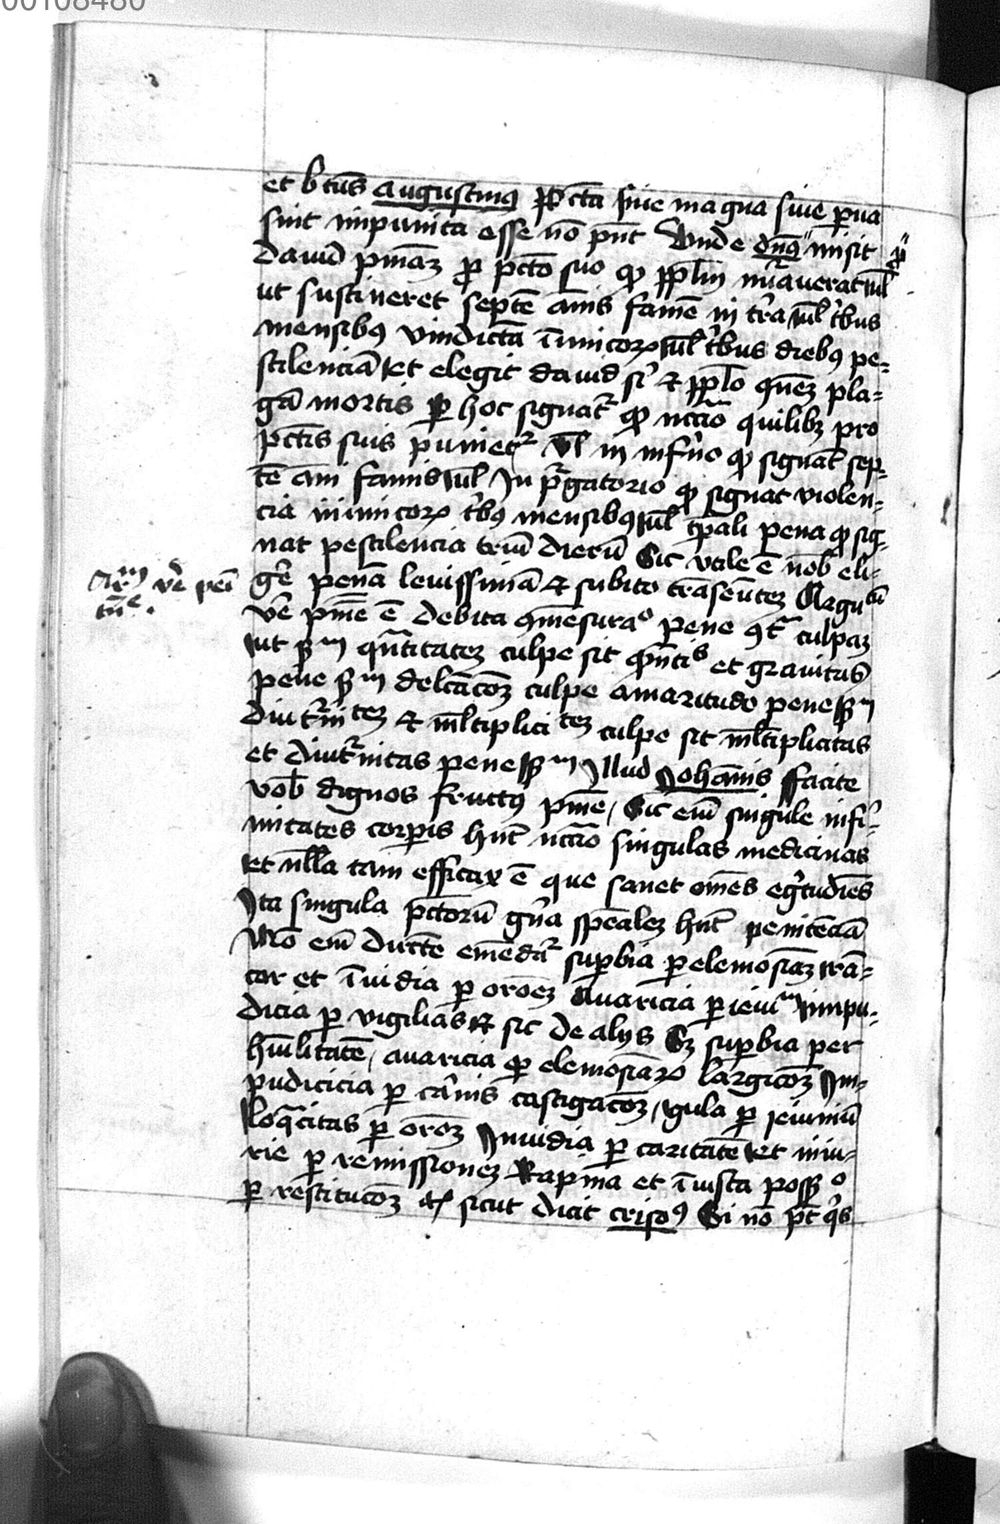 00108480
et btus Augustinus pcta siue magna siue pua
sint impunita esse no pnt Vnde dns misit
dauid pniam p pcto suo q pplm nuauerat ul
ut sustineret septe anis fame in tra ul tbus
mensibus vindicta inimicor ul tbus diebus pe-
stilencia Et elegit dauid si et pplo quem pla-
ga mortis p hoc signat q nccio quilibz pro
pctis suis puniet vl in inferno q signat sep-
te ani famis ul In purgatorio q signat violen-
cia inimicor tbus mensibus ul tpali pena q sig-
nat pestilencia triu dieru Sic vtile e nob eli-
gere pena leuissima et subito transeuntez Argutu
Arm vde peni
tue.
ve pnie e debita mesura pene culpaz
ut sm quantitatez culpe sit quantitas et grauitas
pene sm delcacoz culpe amaritudo pene sm
diut'nitatez et mltiplicitatez culpe sit mltiplicitas
et diut'nitas pene sm Illud Iohannis ffacite
vob dignos fructus pnie / Sic eni singule infi-
mitates corpis hnt nccio singulas medicinas
Et nlla tam efficax e que sanet omes egritudies
Ita singula pctoru gna spealez hnt penitecia
No em directe emedat supbia p elemosiaz ran-
cor et inuidia p oroez Auaricia p ieiu impu-
dicia p vigilias et sic de alijs Sz supbia per
humilitate / auaricia p elemosiar largicoz Im-
pudicicia p carnis castigacoz / gula p ieiuniu
loqcitas p oroz Inuidia p caritate Et iniu-
rie p remissionez Rapina et iniusta poss
p restitucoz sicut dicit criso Si no pt qs